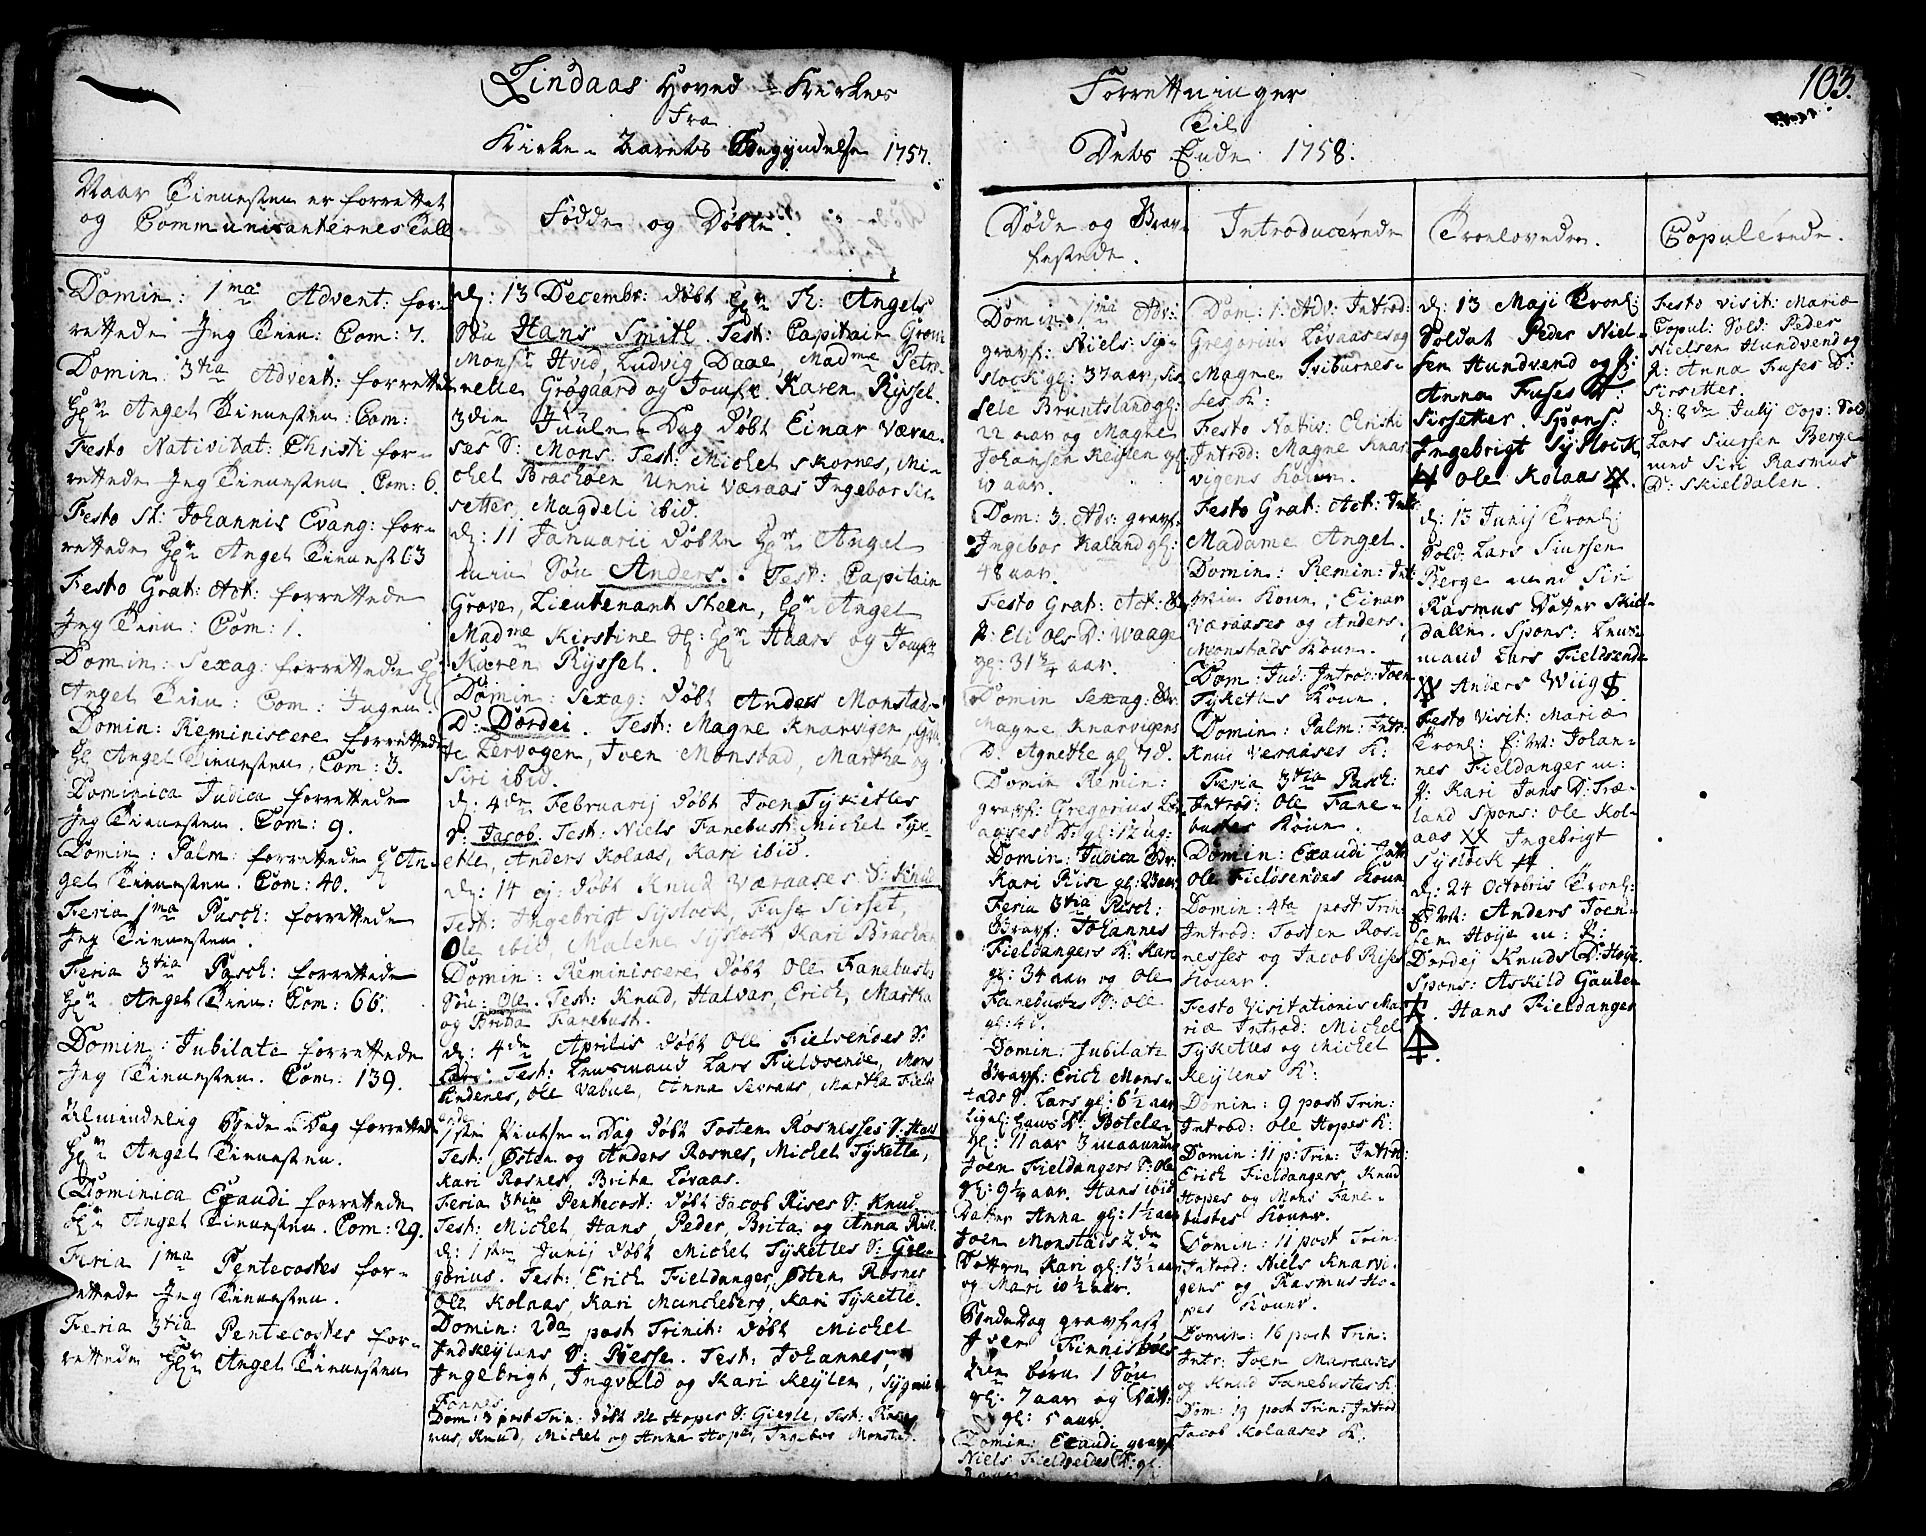 Lindaas Hoved-Kirkes
Fra
Kirke-Aarets Begyndelse 1757.
Forrettninger
Til
Dets Ende 1758.
103.
Naar Tienesten er forrettet
og Communicanternes Tall
Domin: 1ma Advent: for-
rettede Jeg Tien: Com: 7.
Domin 3tia Advent: forrettede
Hr Angel Tienesten: Com:
Festo Nativitat: Christi for-
rettede Jeg Tienesten. Com: 6.
Festo St: Johannis Evang: for-
rettede Hr Angel Tienest 63
Festo Grat: Act: forrettede
Jeg Tien: Com: 1.
Domin: Sexag: forrettede Hr
Angel Tien: Com: Ingen.
Domin: Reminiscere forrettede
Hr Angel Tienesten, Com: 3.
Dominica Judica forrettede
Jeg Tienesten. Com: 9.
Domin: Palm: forrettede Hr An-
gel Tienesten. Com: 40.
Feria 1ma Pasch: forrettede
Jeg Tienesten.
Feria 3tia Pasch: forrettede
Hr Angel Tien: Com: 66.
Domin: Jubilate forrettede
Jeg Tienesten. Com: 139.
Almindelig Bede-Dag forrettede
Hr Angel Tienesten.
Dominica Exaudi forrettede
Hr Angel Tienesten. Com: 29.
Feria 1ma Pentecostes for-
rettede Jeg Tienesten.
Feria 3tia Pentecostes for-
rettede Hr Angel Tienesten
Fødde og Døbte.
d: 13 Decembr: døbt Hr Th: Angels
Søn Hans Smith. Test: Capitain Grove
Monsr Hvid, Ludvig Daae, Madme Petro-
nelle Grøgaard og Jomfr: Karen Ryssel.
3die Juule-Dag døbt Einar Væraa-
ses S: Mons. Test: Michel Skornes, Mi-
chel Brachøen Unni Væraas Ingebor Sir-
setter, Magdeli ibid.
d: 11 Januarii døbte Hr Angel
min Søn Anders. Test: Capitain
Grove, Lieutenant Steen, Hr Angel
Madme Kirstine Hr Haars og Jomfr:
Karen Ryssel.
Domin: Sexag: døbt Anders Monstads
D: Dordei. Test: Magne Knarvigen,
Lervogen, Joen Monstad, Martha og
Siri ibid.
d: 4de Februarij døbt Joen Tyketles
S: Jacob. Test: Niels Fanebust: Michel Tyk-
etle, Anders Kolaas, Kari ibid.
d: 14 ej: døbt Knud Væraases S: Knud
Test: Ingebrigt Syslock, Fuse Sirset
Ole ibid, Malene Syslock Kari Brachøen
Domin: Reminiscere døbt Ole Fanebusts
Søn: Ole. Test: Knud, Halvar, Erich, Martha
og Brita Fanebust.
d: 4de Aprilis døbt Ole Fielsendes S:
Lars. Test: Lensmand Lars Fieldsende, Mons
Sindenes, Ole Vabue, Anna Sævraas, Martha Field-
ende
1ste Pintse-Dag døbt Tosten Rosnesses S: Hans
Test: Østen og Anders Rosnes, Michel Tyketle,
Kari Rosnes, Brita Løvaas.
Feria 3tia Pentecost: døbt Jacob Rises S: Knud
Test: Michel, Hans, Peder, Brita og Anna Rise.
d: 1ste Junij døbt Michel Tyketles S: Gre-
gorius. Test: Erich Fieldanger, Østen Rosnes
Ole Kolaas, Kari Muncheberg, Kari Tyketle.
Domin: 2da post Trinit: døbt Michel
Indkeylens S: Besse. Test: Johannes,
Ingebrigt, Ingvald og Kari Keylen, Sygni
Fonnes
Dom: 3 post Trin: døbt Ole Hopes S: Gierle, Test: Ras-
mus, Knud, Michel og Anna Hope, Ingebor Monstad.
Døde og Begrav-
festede.
Domin: 1ma Adv:
gravf: Niels Sy-
slock gl: 37 aar, Sis
sele Bruntsland gl:
22 aar og Magne
Johansen Keylen gl:
10 aar.
Dom: 3. Adv: gravf:
Ingebor Kaland gl:
48 aar.
Festo Grat: Act: B
P: Eli Ols D: Waage
gl: 31 3/4 aar.
Domin Sexag: Gr:
Magne Knarvigens
D: Agnethe gl: 7 d.
Domin Remin:
gravf: Gregorius Løv
aases D: gl: 12 ug:
Domin: Judica Gr:
Kari Rise gl: 23 aar
Feria 3tia Pasch:
Gravf: Johannes
Fieldangers K: Kari
gl: 34 aar og Ole
Fanebustes S: Ole
gl: 4 d.
Domin: Jubilate
Gravf: Erich Mons-
tads S: Lars gl: 6 1/2 aar
ligel: hans D: Botele-
gl: 11 aar 3 maaneder
Joen Fieldangers S: Ole
gl: 9 1/4 aar. Hans ibid
Datter Anna gl: 1 1/2 aar
Joen Monstads 2de
Døttre Kari gl: 13 1/2 aar
og Mari 10 1/2 aar.
Bededag gravfest
Iver Finnisbøes
børn 1 Søn
gl: 7 aar og Datt:
gl: 5 aar.
Domin: Exaudi gravf
Niels Fieldsendes D: gl:
Introducerede
Dom: 1: Adv: Introd:
Gregorius Løvaases og
Magne Sviburnes-
ses K:
Festo Nativ: Christi
Introd: Magne Knar
vigens Kone.
Festo Grat: Act: Int:
Madame Angel.
Domin: Remin: Int:
Min Kone; Einar
Væraases og Anders
Monstads Kone.
Dom: Jud: Introd: Joen
Tyketles Kone.
Domin: Palm: Introd:
Knud Veraases K:
Feria 3tia Pasch:
Introd: Ole Fane-
bustes Kone.
Domin: Exaudi Intr
Ole Fieldsendes Kone
Domin: 4ta post Trin
Introd: Tosten Ros-
nesses og Jacob Rises
Koner.
Festo Visitationis Ma
riæ Introd: Michel
Tyketles og Michel
Keylens K:
Domin: 9 post Trin:
Introd: Ole Hopes K:
Domin: 11 p: Trin: Introd:
Erich Fieldangers, Knud
Hopes og Mons Fane-
bustes Koner.
Domin: 11 post Trin:
Introd: Niels Knarvi
gens og Rasmus Ho-
pes Koner.
Domin: 16 post Trin:
Intr: Joen Maraases
og Knud Fanebustes K:
Dom: 19 post Trin: Introd
Jacob Kolaases K:
Troelovede.
d: 13 Maji Troel:
Soldat Peder Niel-
sen Hundvend og P:
Anna Fuses D:
Sirsetter. Spons:
Ingebrigt Syslock
Ole Kolaas
d: 13 Junij Troel:
Sold: Lars Siursen
Berge med Siri
Rasmus Datter Skiel-
dalen. Spons: Lens-
mand Lars Fieldsende
Anders Wiig
Festo Visit: Mariæ
Troel: E: M: Johan-
nes Fieldanger m:
P: Kari Jans D: Træ-
land Spons: Ole Kol-
aas Ingebrigt
Syslock
d: 24 Octobris Troel:
E: M: Anders Joen-
sen Høije m: P:
Dordej Knuds D: Høye
Spons: Askild Gaulen
Hans Fieldanger
Copulerede.
Festo Visit: Mariæ
Copul: Sold: Peder
Nielsen Hundvend og
P: Anna Fuses D:
Sirsetter.
d: 8de Julij Cop: Sold:
Lars Siursen Berge
med Siri Rasmus
D: Skieldalen.